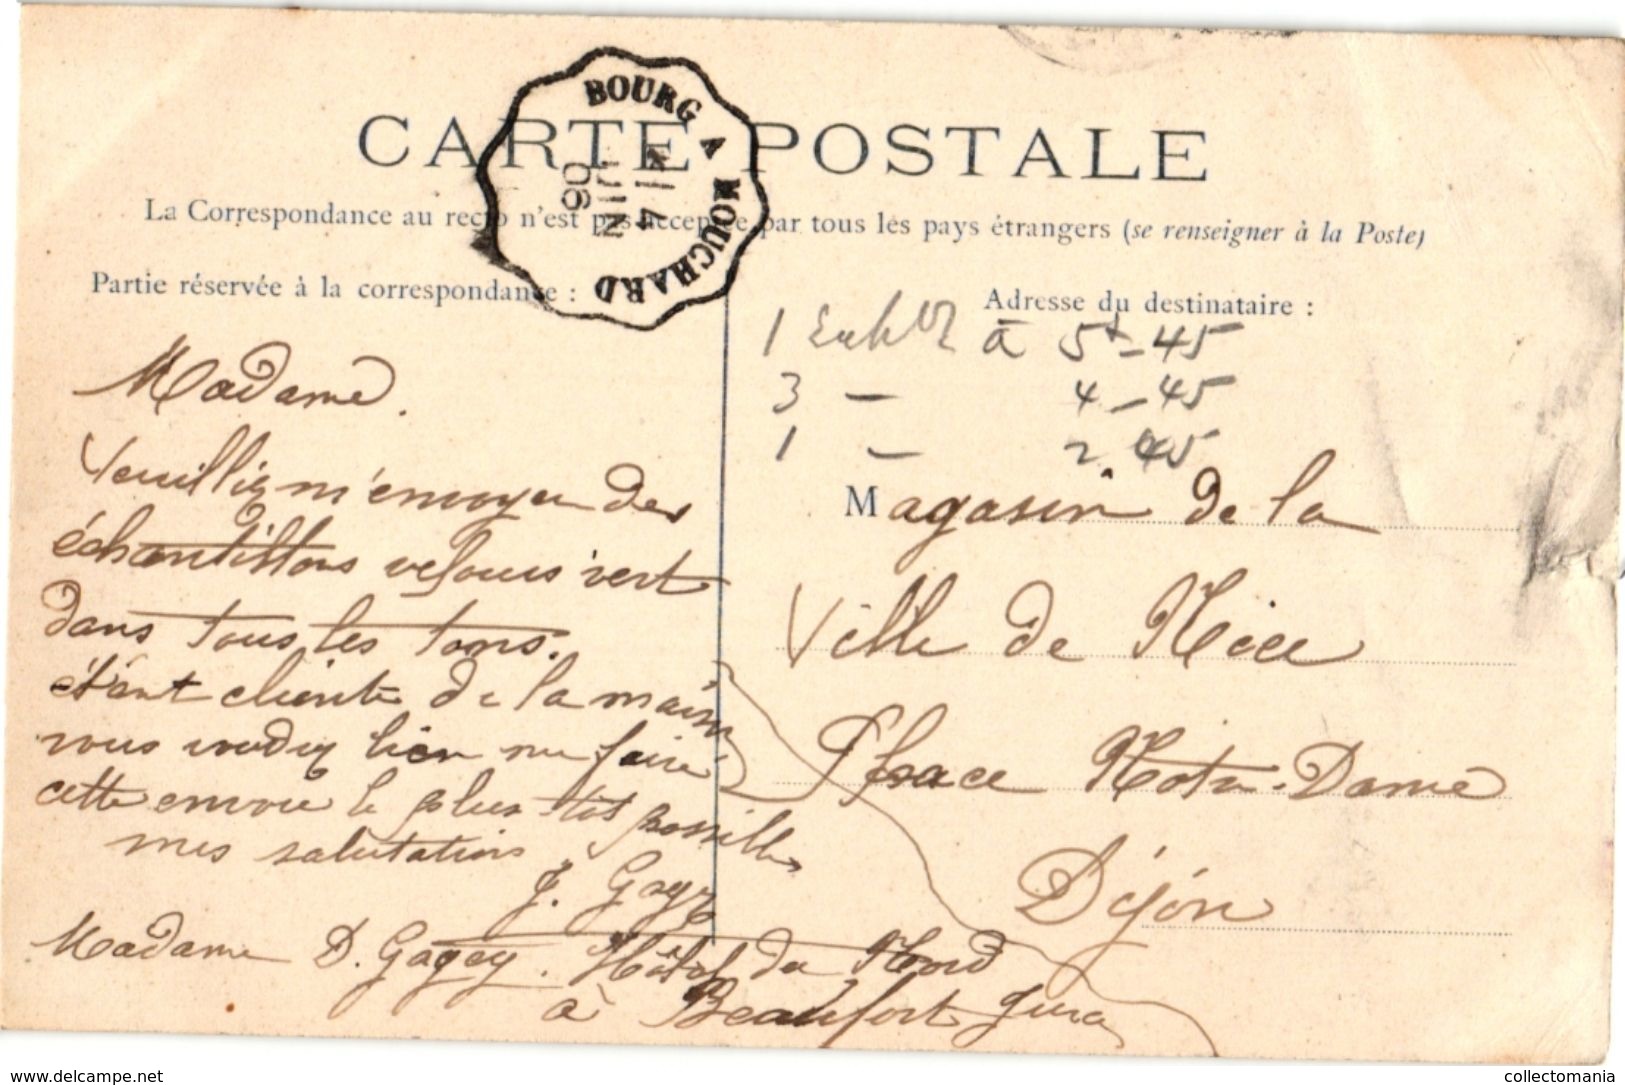 CARTE POSTALE
BOURG A MOUCHARD
4
JUIN
06
La Correspondance au recto n'est pas acceptée par tous les pays étrangers (se renseigner à la Poste)
Partie réservée à la correspondance :
Madame.
Veuillez m'envoyer des
échantillons velours vert
dans tous les tons.
étant cliente de la maison
vous voudrez bien me faire
cette envoie le plus tôt possible
mes salutations
J. Gagey
Madame D. Gagey. Hôtel du Nord
à Beaufort Jura
Adresse du destinataire :
1 à 5 - 45
3 — 4 - 45
1 — 2 45
Magasin de la
Ville de Nice
Place Notre-Dame
Dijon
www.delcampe.net
collectomania